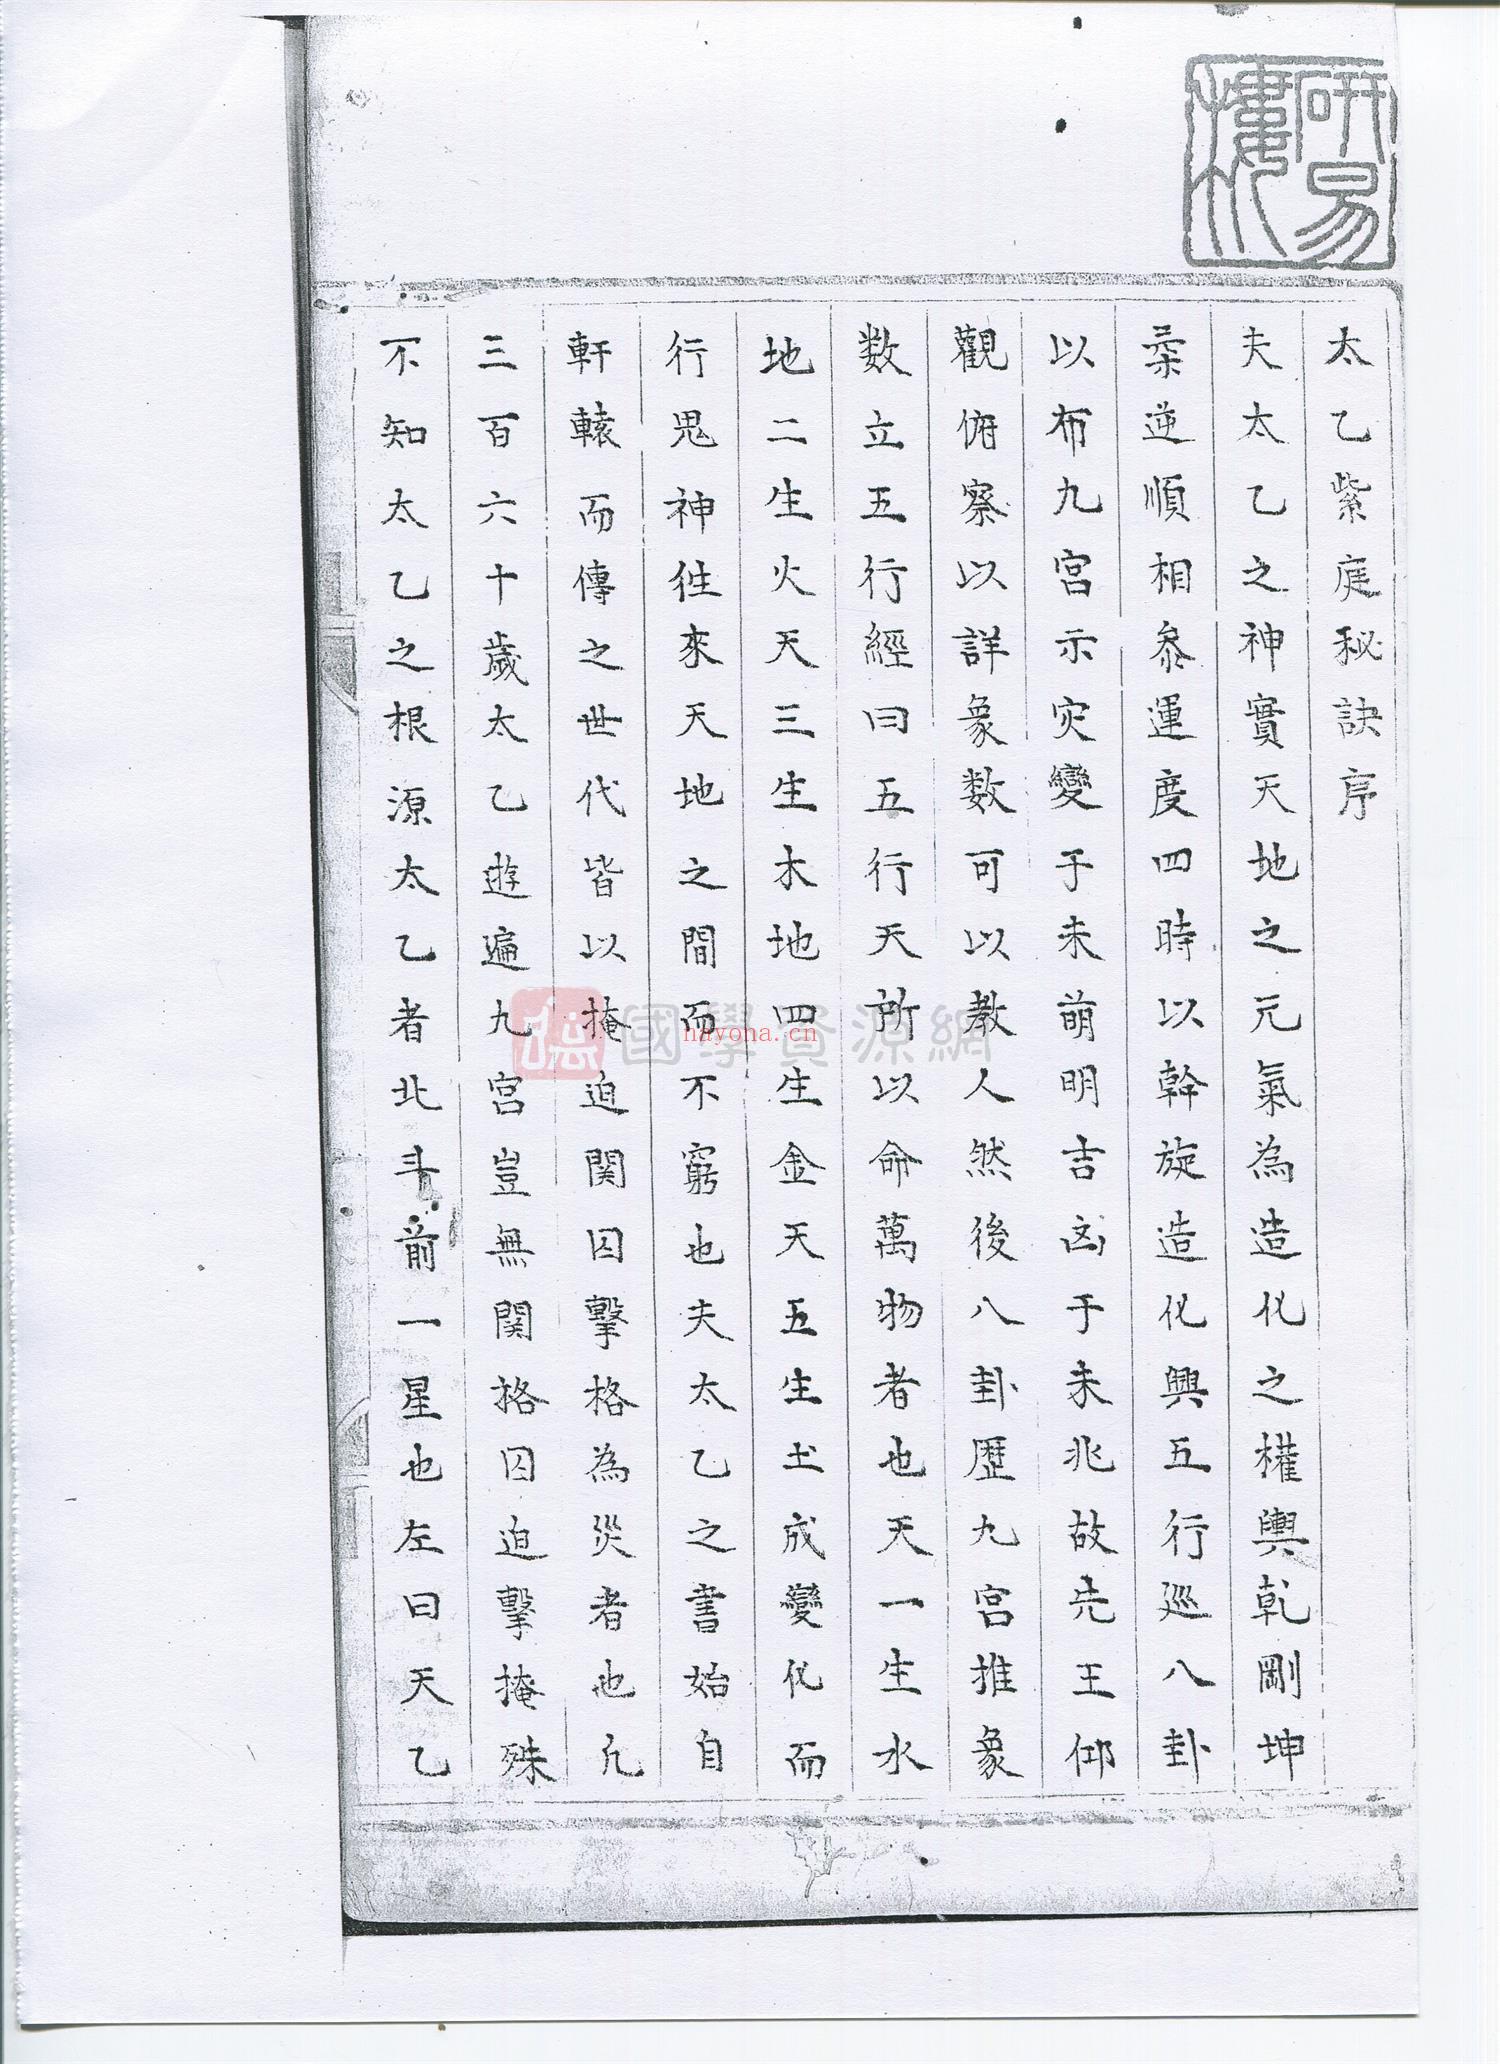 研易樓
太乙紫庭秘訣序
夫太乙之神實天地之元氣為造化之權輿乾剛坤
柔逆順相叅運度四時以斡旋造化興五行廵八卦
以布九宮示灾變于未萌明吉凶于未兆故先王仰
觀俯察以詳象数可以教人然後八卦歷九宮推象
数立五行經曰五行天所以命萬物者也天一生水
地二生火天三生木地四生金天五生土成變化而
行鬼神徃來天地之間而不窮也夫太乙之書始自
軒轅而傳之世代皆以掩迫関囚擊格為災者也凢
三百六十歲太乙遊遍九宮豈無関格囚迫擊掩殊
不知太乙之根源太乙者北斗前一星也左曰天乙
國學資源網
nayona.cn